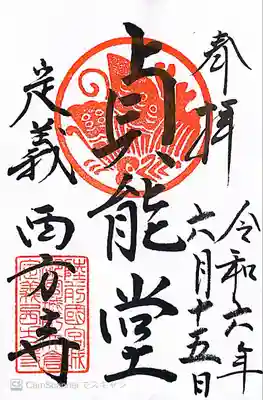 奉拝
令和六年
六月十五日
貞能堂
定義
西方寺
CamScanner でスキャン